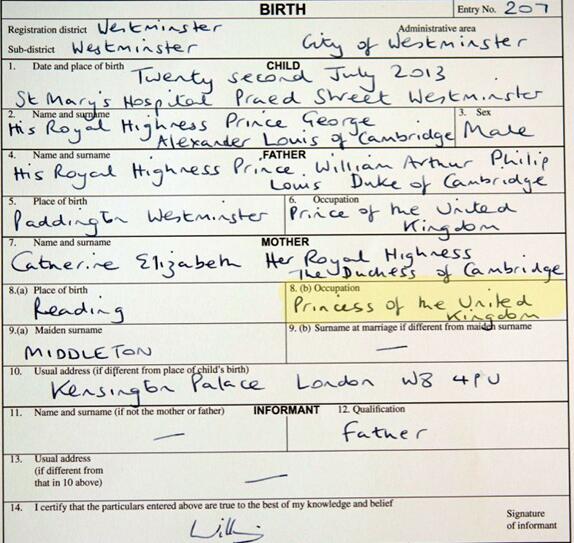 BIRTH Entry No. 207
Registration district Westminster Administrative area
Sub-district Westminster City of Westminster
1. Date and place of birth CHILD
Twenty second July 2013
St Mary's Hospital Praed Street Westminster
2. Name and surname 3. Sex
His Royal Highness Prince George
Alexander Louis of Cambridge Male
4. Name and surname FATHER
His Royal Highness Prince William Arthur Philip
Louis Duke of Cambridge
5. Place of birth 6. Occupation
Paddington Westminster Prince of the United
Kingdom
7. Name and surname MOTHER
Catherine Elizabeth Her Royal Highness
The Duchess of Cambridge
8.(a) Place of birth 8. (b) Occupation
Reading Princess of the United
Kingdom
9.(a) Maiden surname 9. (b) Surname at marriage if different from maiden surname
MIDDLETON —
10. Usual address (if different from place of child's birth)
Kensington Palace London W8 4PU
11. Name and surname (if not the mother or father) INFORMANT 12. Qualification
— Father
13. Usual address
(if different from
that in 10 above) —
14. I certify that the particulars entered above are true to the best of my knowledge and belief
Signature
of informant